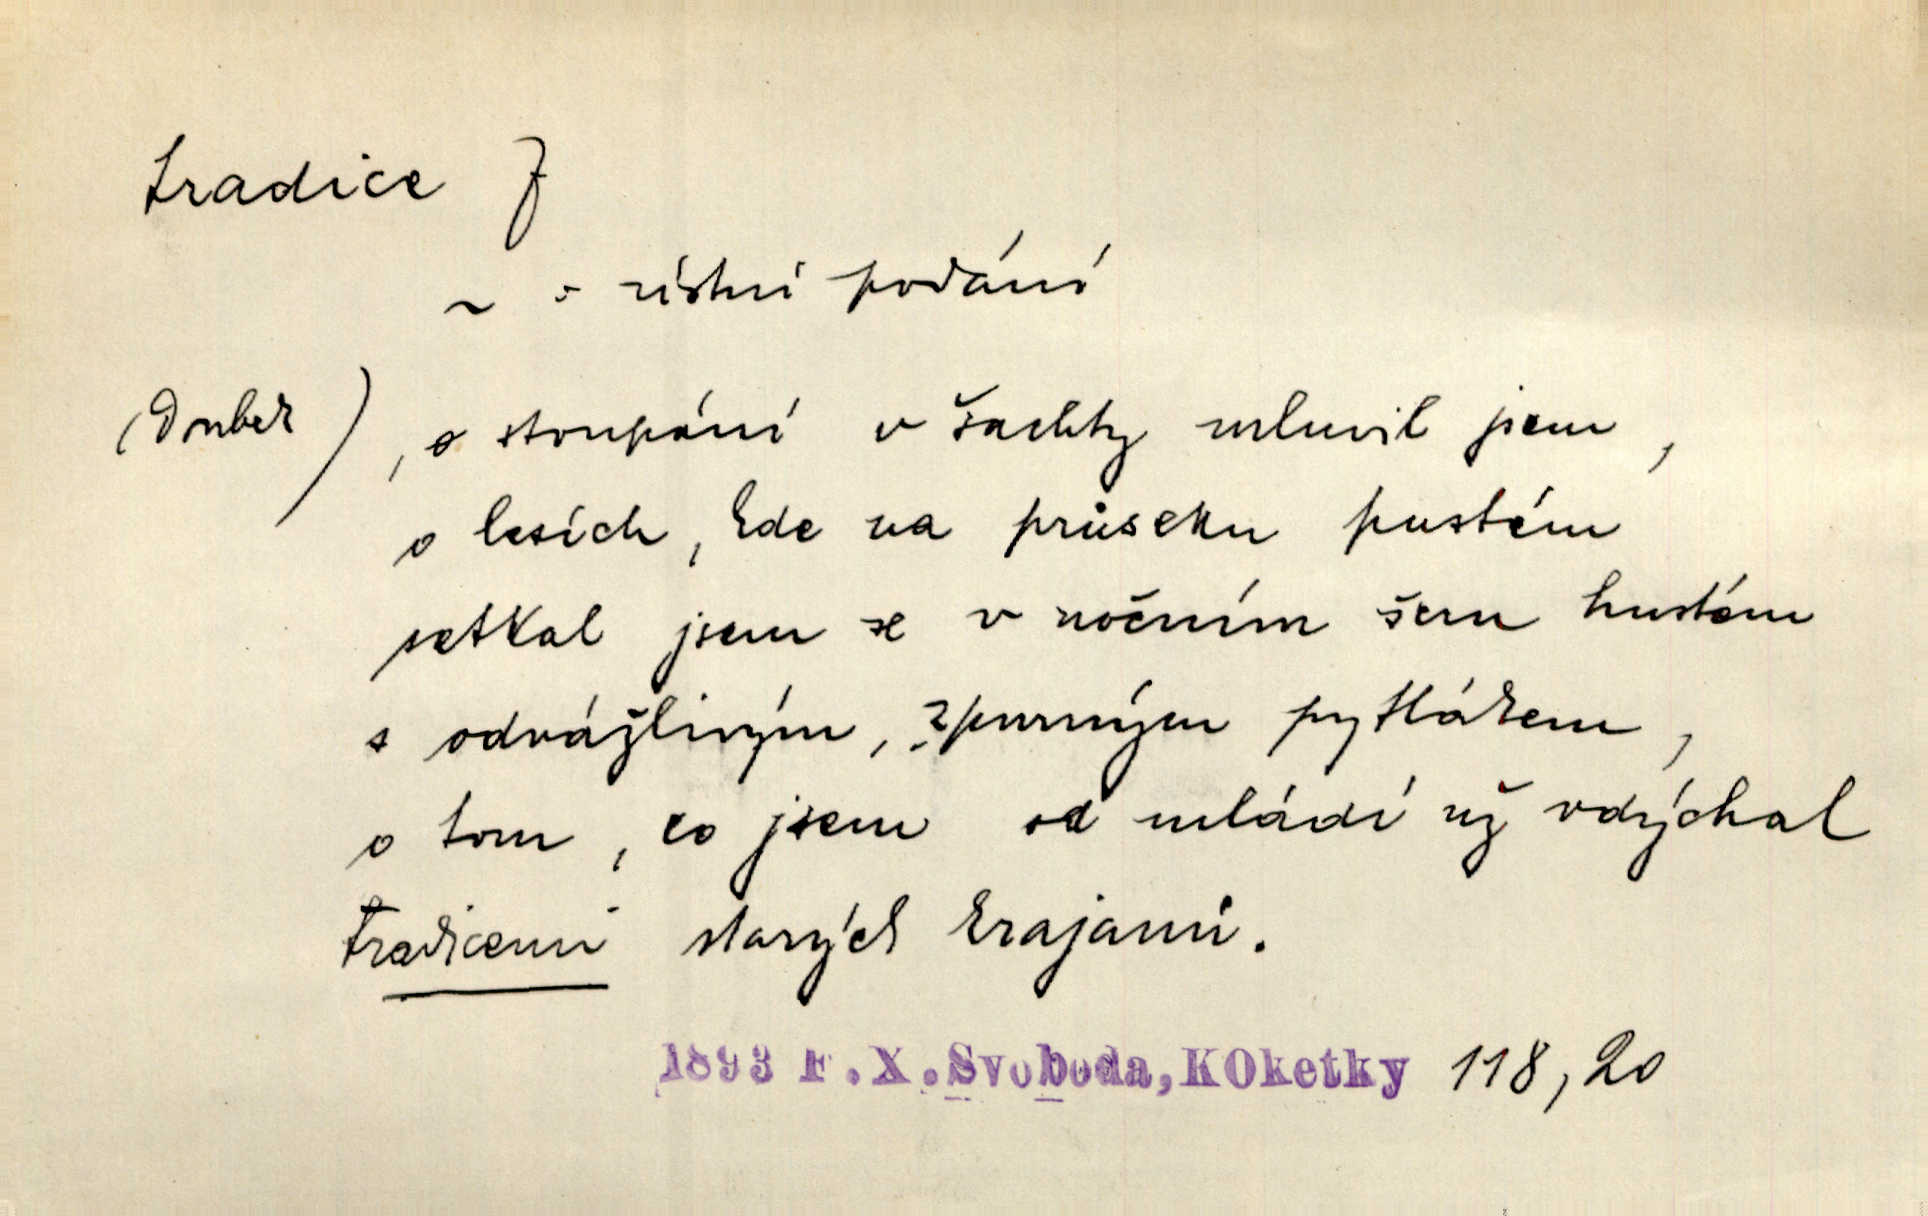 tradice f
~ = ústní podání
(Doubek), o stoupání v šachty mluvil jsem,
o lesích, kde na průseku pustém
setkal jsem se v nočním šeru hustém
s odvážlivým, zpurným pytlákem,
o tom, co jsem od mládí už vdýchal
tradicemi starých krajanů.
1893 F.X.Svoboda,KOketky 118,20